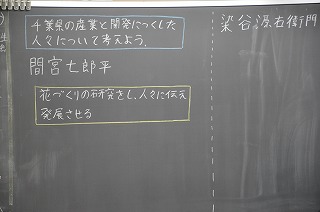 千葉県の産業と開発につくした
人々について考えよう。
間宮七郎平
花づくりの研究をし、人々に伝え
発展させる
染谷源右衛門